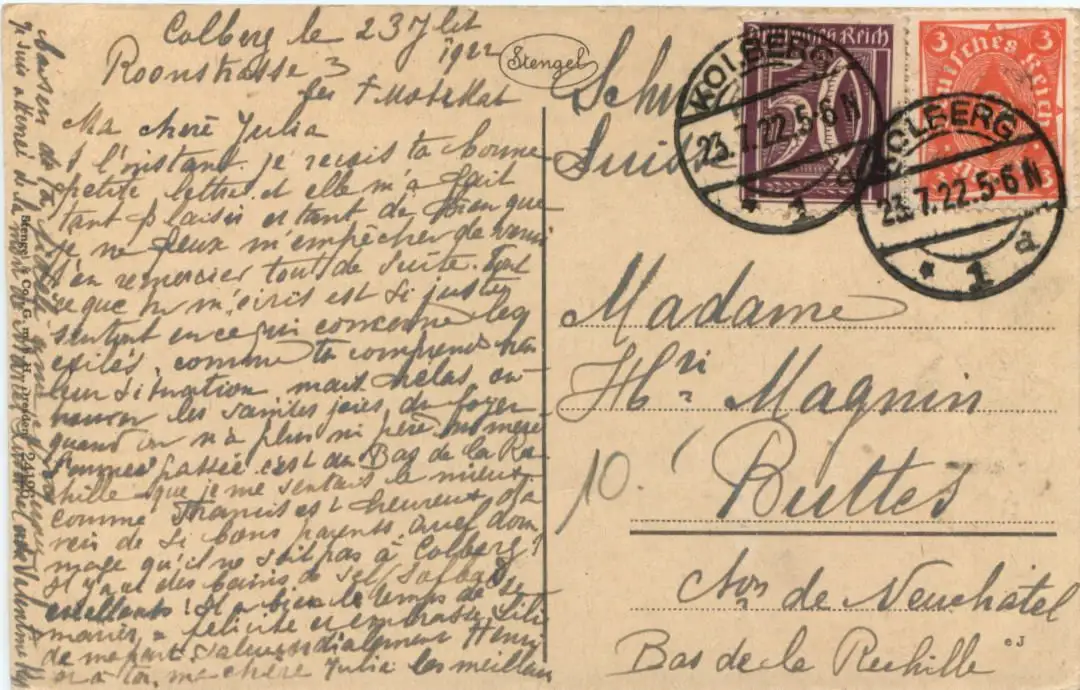 Colberg le 23 Jlet
1922
Roonstrasse 3
Ma chère Julia
A l'instant je reçois ta bonne
petite lettre et elle m'a fait
tant plaisir et tant de bien que
je ne peux m'empêcher de venir
t'en remercier tout de suite. Tout
ce que tu m'écris est si juste
surtout en ce qui concerne les
exilés, comme tu comprends bien
leur situation mais hélas où
trouver les saintes joies du foyer
quand on n'a plus ni père ni mère
L'année passée c'est au Bas de la Re
chille que je me sentais le mieux.
comme Francis est heureux d'a
voir de si bons parents quel dom
mage qu'il ne soit pas à Colberg!
Il y a des bains de sel (Solbad)
excellents! Il a bien le temps de se
marier, félicite et embrasse Lili
de ma part. Salue cordialement Henri
et à toi, ma chère Julia les meilleurs
baisers de ta
Stengel
Stengel & Co., G. m. b. H., Dresden 24196
Suisse
Madame
Hri Magnin
Buttes
Cton de Neuchâtel
Bas de la Rechille
10.
Deutsches Reich
50
3 3
Deutsches Reich
3 3
KOLBERG
23.7.22.5-6 N
* 1 d
KOLBERG
23.7.22.5-6 N
* 1 d